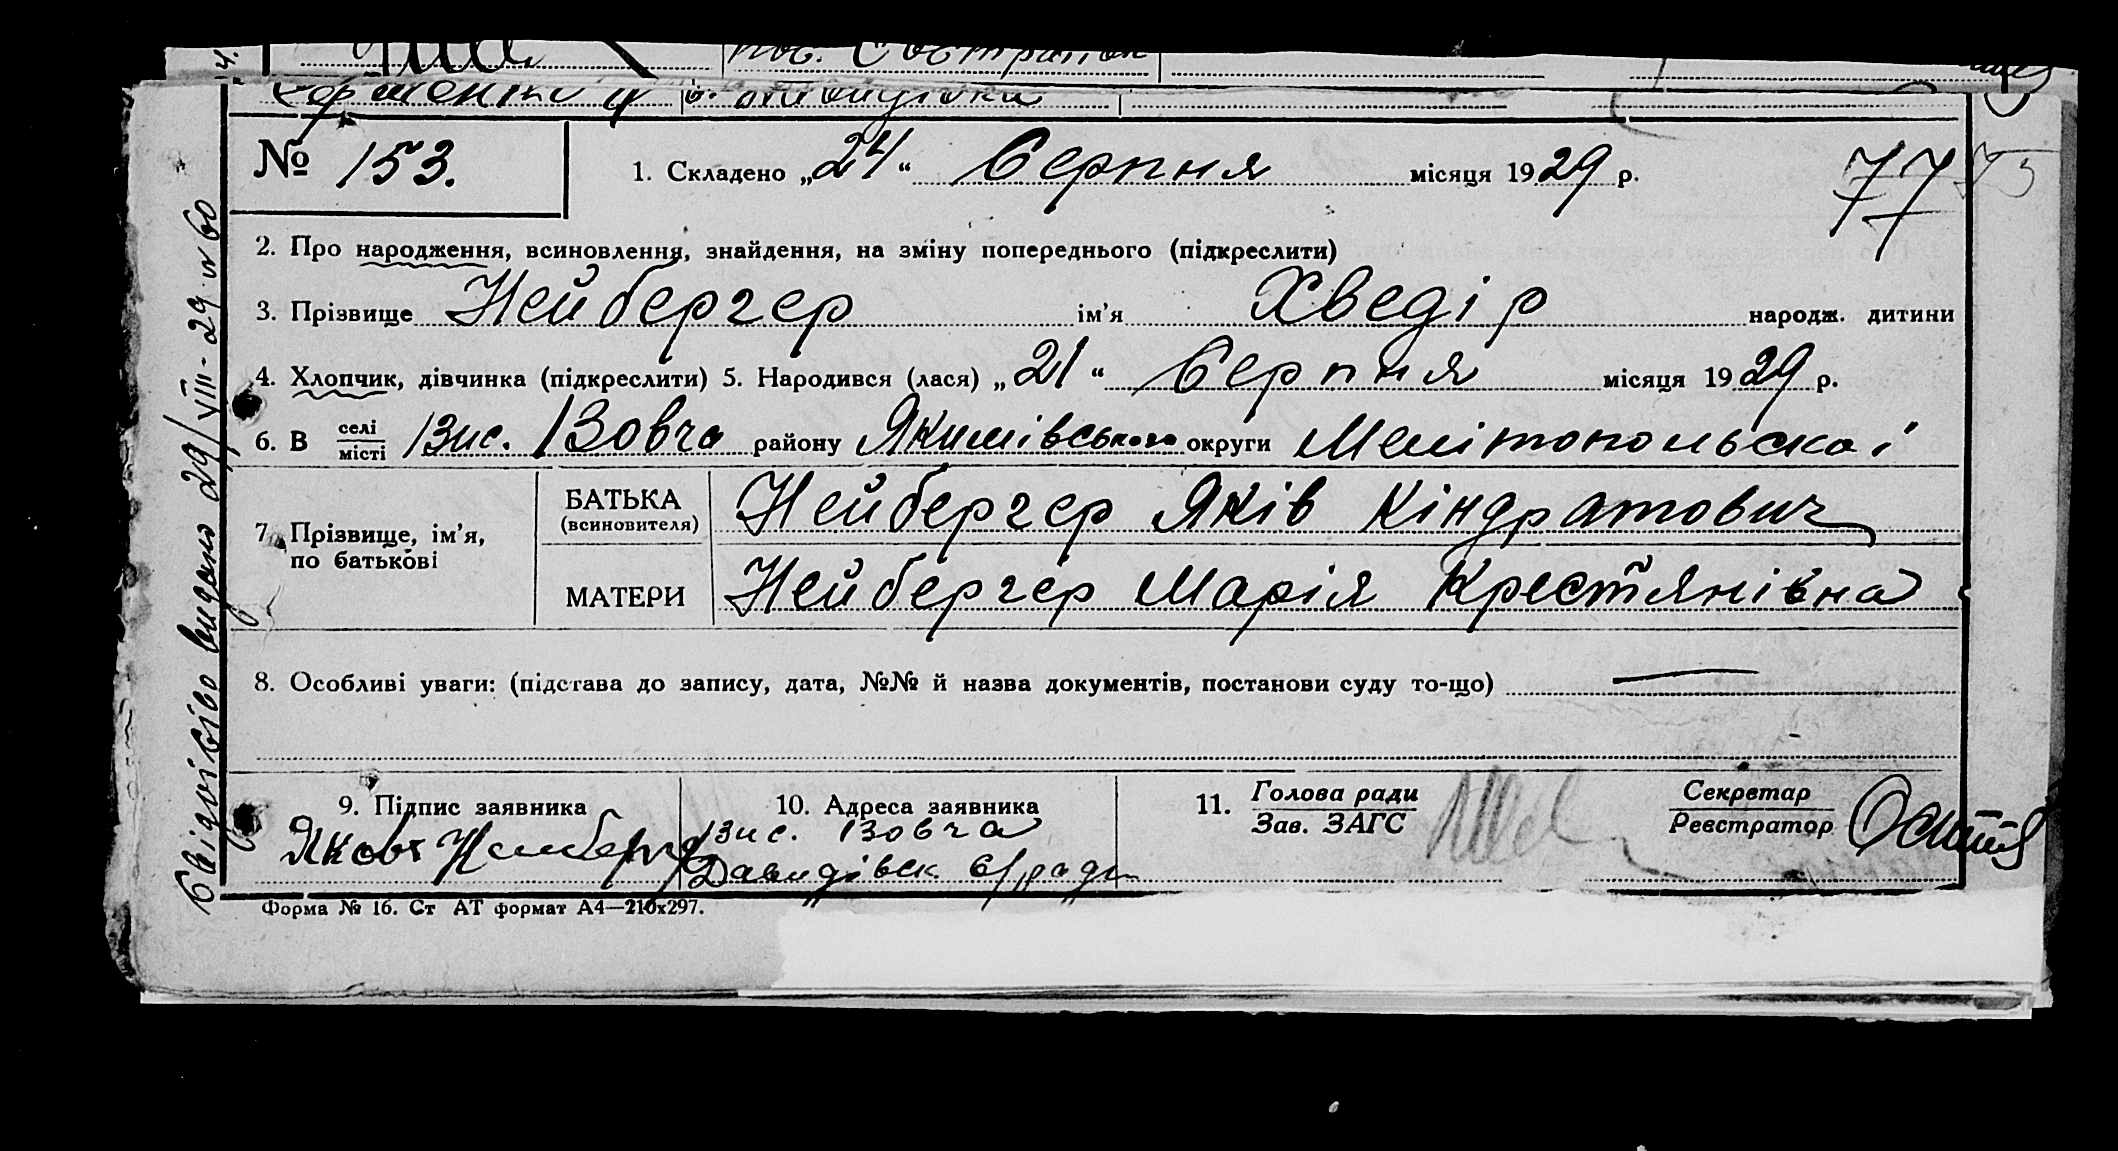 № 153.
1. Складено „24“ Серпня місяця 1929 р.
77 75
2. Про народження, всиновлення, знайдення, на зміну попереднього (підкреслити)
3. Прізвище Нейбергер ім’я Хведір народж. дитини
4. Хлопчик, дівчинка (підкреслити) 5. Народився (лася) „21“ Серпня місяця 1929 р.
6. В селі місті Вис. Вовча району Якимівського округи Мелітопольскої
7. Прізвище, ім’я, по батькові
БАТЬКА (всиновителя) Нейбергер Яків Кіндратович
МАТЕРИ Нейбергер Марія Крестянівна
8. Особливі уваги: (підстава до запису, дата, №№ й назва документів, постанови суду то-що) —
9. Підпис заявника
Яковъ
10. Адреса заявника
Вис. Вовча
Давидівск с/ради
11. Голова ради
Зав. ЗАГС
Секретар
Реєстратор
Форма № 16. Ст АТ формат А4—210х297.
Свідоцтво видано 29/VIII-29 № 60